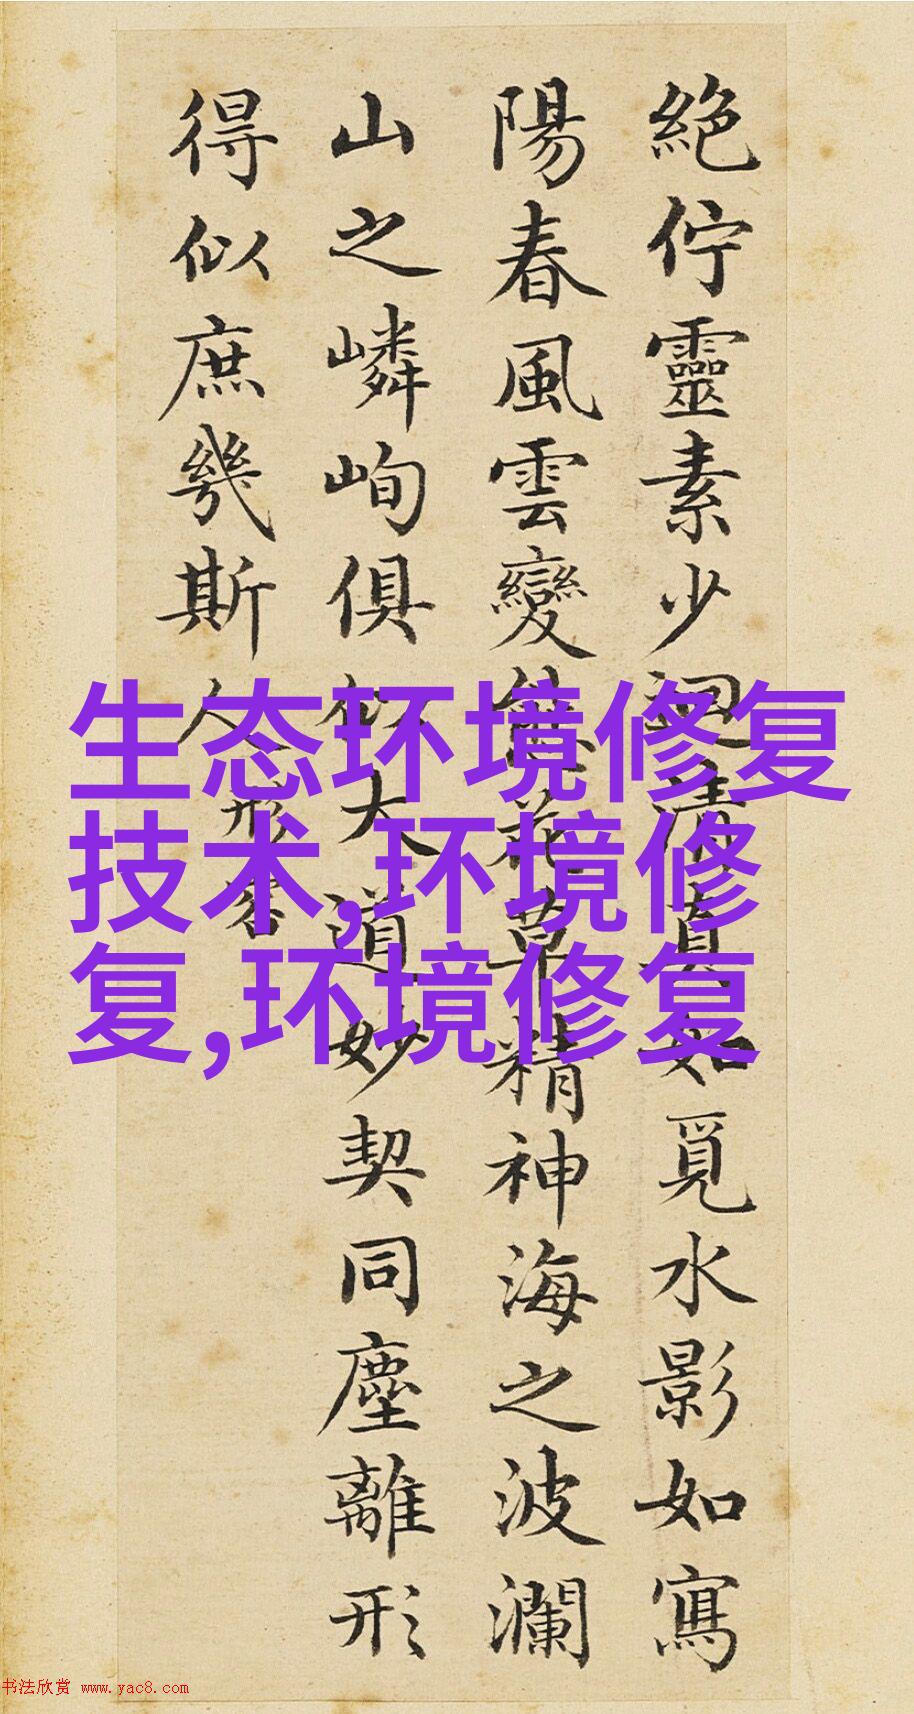 絕佇靈素少迴清真如覓水影如寫
陽春風雲變態花草精神海之波瀾
山之嶙峋俱似大道妙契同塵離形
得似庶幾斯人形容
生态环境修复
技术,环境修
复,环境修复
书法欣赏 www.yac8.com